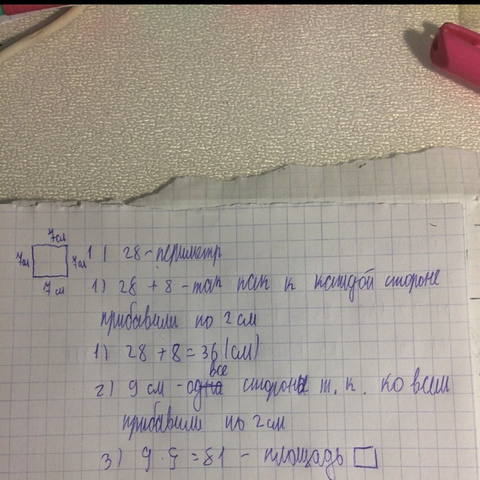 7см
7см 7см 1) 28 - периметр
7см
1) 28 + 8 - так как к каждой стороне
прибавили по 2 см
1) 28 + 8 = 36 (см)
все
2) 9 см - одна стороны т. к. ко всем
прибавили по 2 см
3) 9 · 9 = 81 - площадь